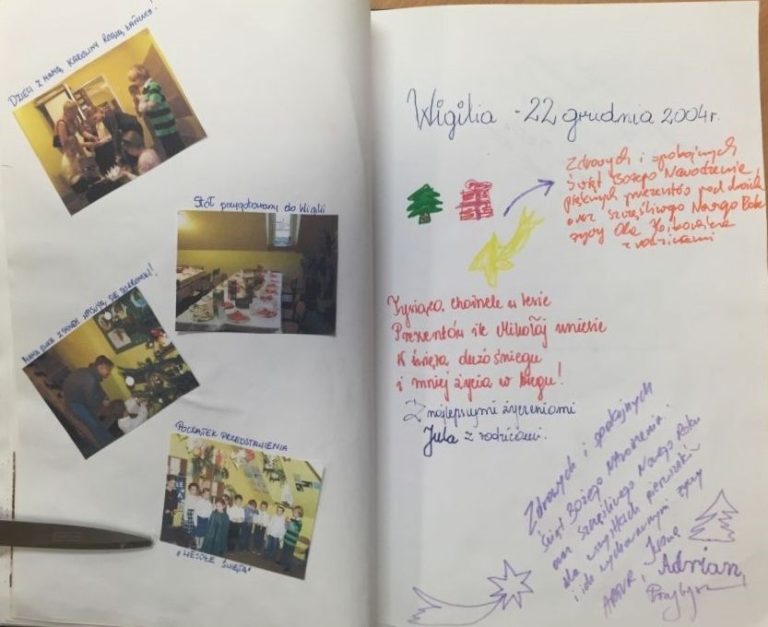 DZIECI Z MAMĄ KAROLINY ROBIĄ ŁAŃCUCH!
Stół przygotowany do Wigilii
MAMA
POCZĄTEK PRZEDSTAWIENIA
"WESOŁE ŚWIĘTA"
Wigilia - 22 grudnia 2004r.
Zdrowych i spokojnych
Świąt Bożego Narodzenia,
pięknych prezentów pod choinką
oraz szczęśliwego Nowego Roku
życzy Ola
z rodzicami
Tysiąca choinek w lesie
Prezentów ile Mikołaj uniesie
K święta dużo śniegu
i mniej życia w biegu!
Z najlepszymi życzeniami
Jula z rodzicami.
Zdrowych i spokojnych
Świąt Bożego Narodzenia
oraz szczęśliwego Nowego Roku
dla wszystkich pierwszaków
i ich wychowawczyni życzy
ARTUR, Iwona
Adrian